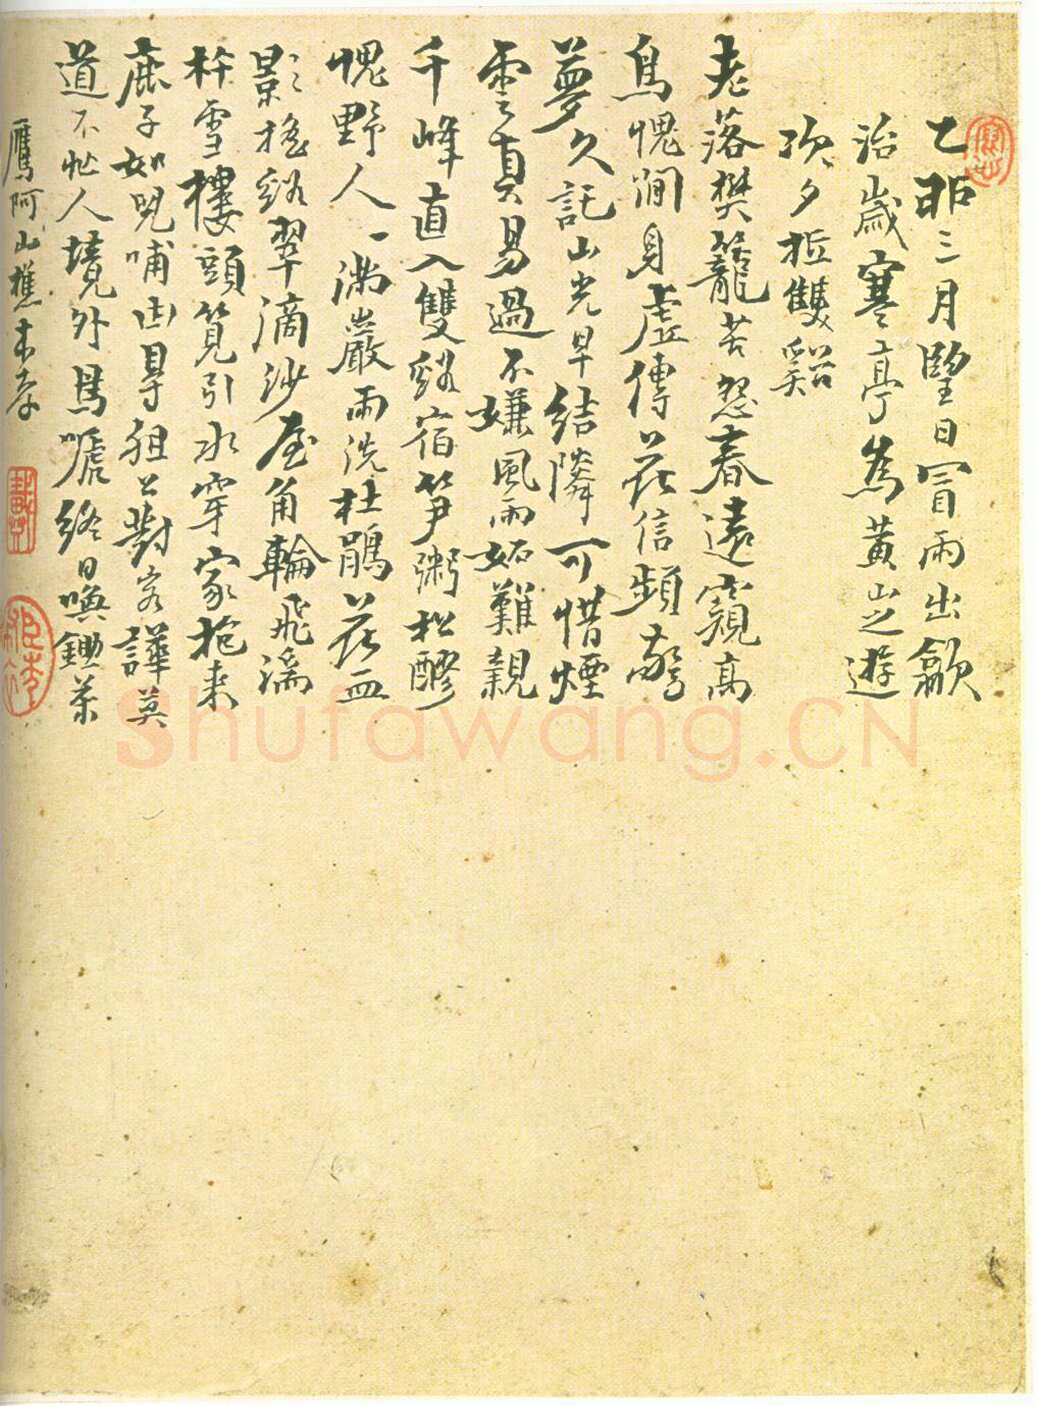 乙卯三月朢日冒雨出歙
治歲寒亭為黃山之遊
次夕抵雙谿
老落樊籠苦怨春遠窺高
鳥愧澗身虛傳花信頻驚
夢久託山光早結隣可惜煙
雲真易過不嫌風雨妬難親
千峰直入雙谿宿笋粥松醪
愧野人一滿巖雨洗杜鵑花血
影搖谿翠滴沙屋角輪飛濤
杵雪樓頭筧引水穿家抱来
鹿子如兒哺

尋狙公對客譁莫
道不忙人境外鳥嘑終日喚鋤茶
鷹阿山樵
Shufawang.CN